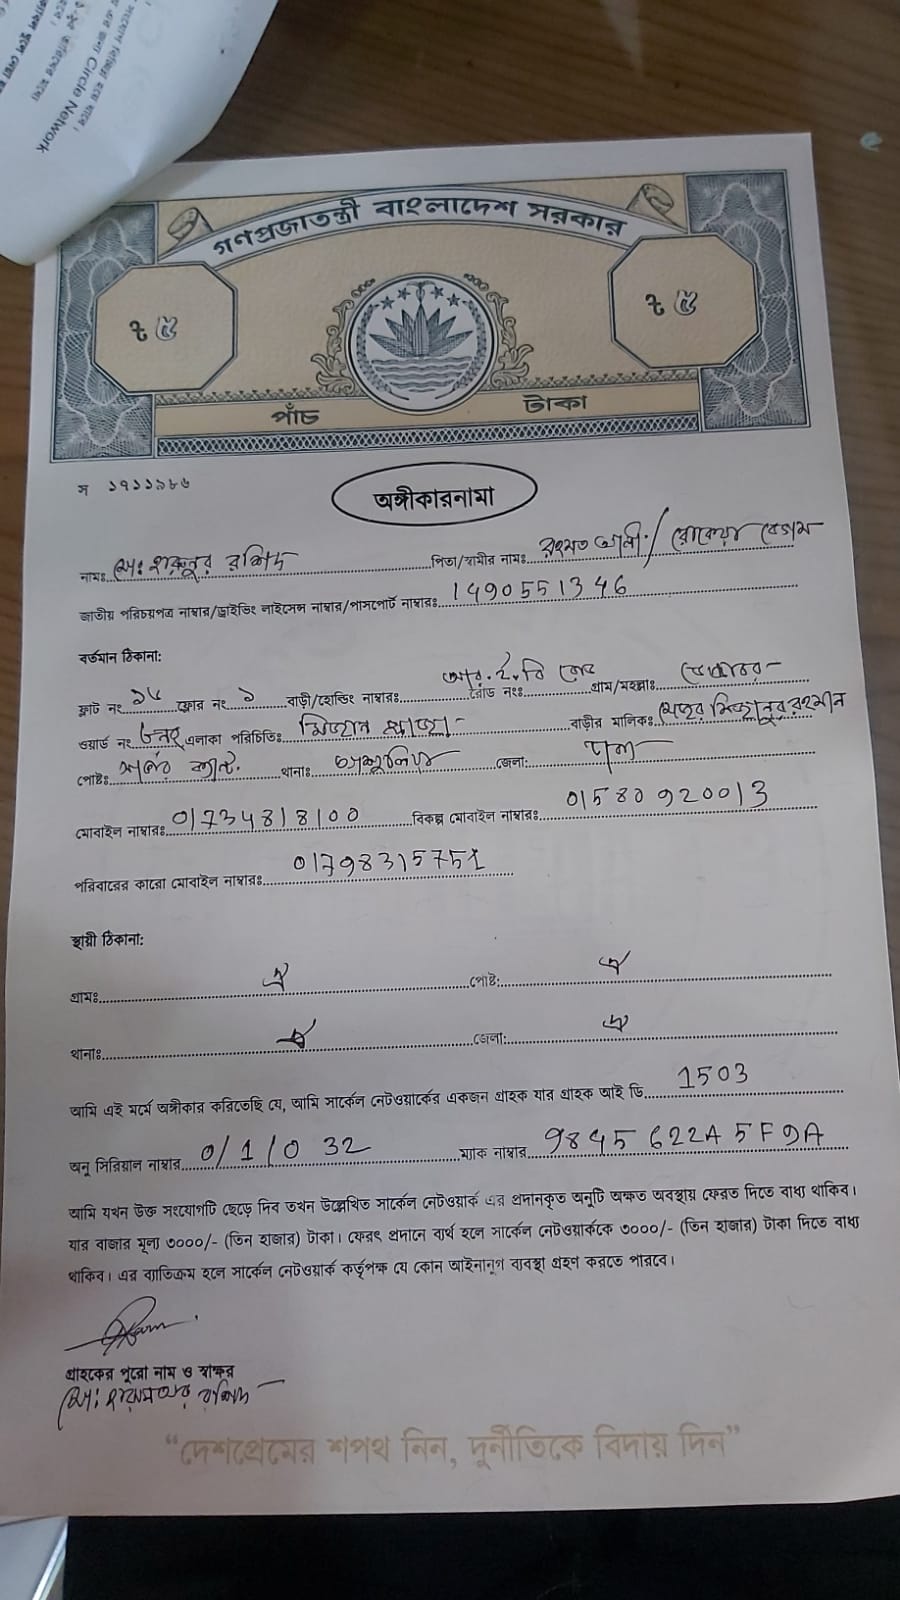 গণপ্রজাতন্ত্রী বাংলাদেশ সরকার
৳ ৫ ৳ ৫
পাঁচ টাকা
স ১৭১১৯৮৬
অঙ্গীকারনামা
নামঃ মোঃ হারুনুর রশিদ পিতা/স্বামীর নামঃ রহমত আলী / রোকেয়া বেগম
জাতীয় পরিচয়পত্র নাম্বার/ড্রাইভিং লাইসেন্স নাম্বার/পাসপোর্ট নাম্বারঃ 1490551346
বর্তমান ঠিকানা:
ফ্লাট নং ফ্লোর নং ১ বাড়ী/হোল্ডিং নাম্বারঃ রোড নংঃ গ্রাম/মহল্লাঃ
ওয়ার্ড নং এলাকা পরিচিতিঃ মিজান বাড়ীর মালিকঃ মিজানুর রহমান
পোষ্টঃ থানাঃ জেলা:
মোবাইল নাম্বারঃ 01734818100 বিকল্প মোবাইল নাম্বারঃ 01580920013
পরিবারের কারো মোবাইল নাম্বারঃ 01798315751
স্থায়ী ঠিকানা:
গ্রামঃ ঐ পোষ্ট: ঐ
থানাঃ ঐ জেলা: ঐ
আমি এই মর্মে অঙ্গীকার করিতেছি যে, আমি সার্কেল নেটওয়ার্কের একজন গ্রাহক যার গ্রাহক আই ডি 1503
অনু সিরিয়াল নাম্বার 0/1/0 32 ম্যাক নাম্বার 9845 622A 5F9A
আমি যখন উক্ত সংযোগটি ছেড়ে দিব তখন উল্লেখিত সার্কেল নেটওয়ার্ক এর প্রদানকৃত অনুটি অক্ষত অবস্থায় ফেরত দিতে বাধ্য থাকিব।
যার বাজার মূল্য ৩০০০/- (তিন হাজার) টাকা। ফেরৎ প্রদানে ব্যর্থ হলে সার্কেল নেটওয়ার্ককে ৩০০০/- (তিন হাজার) টাকা দিতে বাধ্য
থাকিব। এর ব্যতিক্রম হলে সার্কেল নেটওয়ার্ক কর্তৃপক্ষ যে কোন আইনানুগ ব্যবস্থা গ্রহণ করতে পারবে।
গ্রাহকের পুরো নাম ও স্বাক্ষর
মোঃ রশিদ
“দেশপ্রেমের শপথ নিন, দুর্নীতিকে বিদায় দিন”
Circle Network